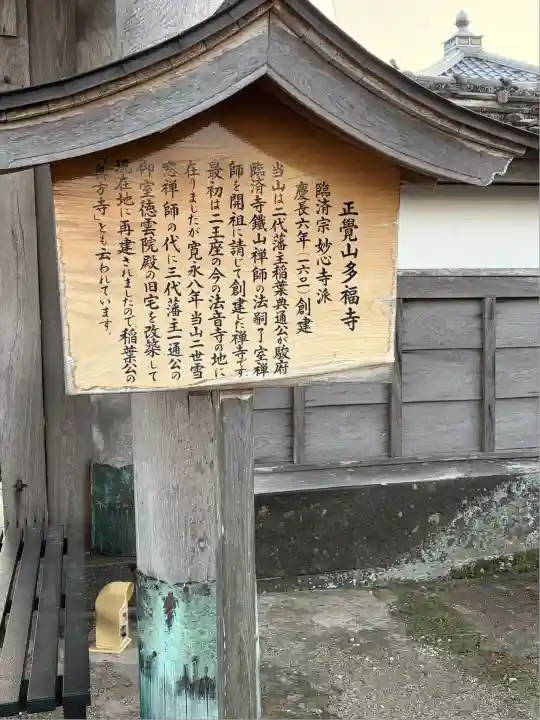 正覺山多福寺
臨済宗妙心寺派
慶長六年(一六〇一)創建
当山は二代藩主稲葉典通公が駿府
臨済寺鐵山禅師の法嗣了室禅
師を開祖に請して創建した禅寺です
最初は二王座の今の法音寺の地に
在りましたが寛永八年当山二世雪
窓禅師の代に三代藩主一通公の
御室徳雲院殿の旧宅を改築して
現在地に再建されましたので稲葉公の
「奥方寺」とも云われています。